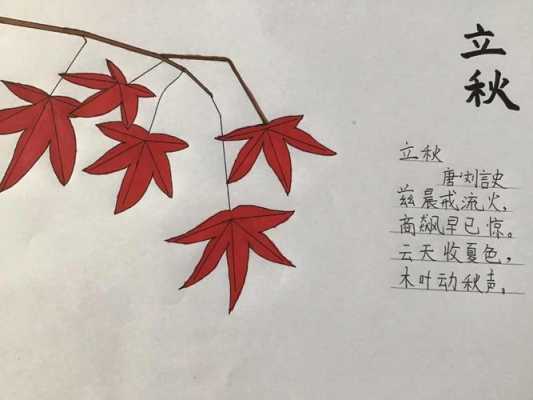 立秋
立秋
唐·刘言史
兹晨戒流火,
商飙早已惊。
云天收夏色,
木叶动秋声。